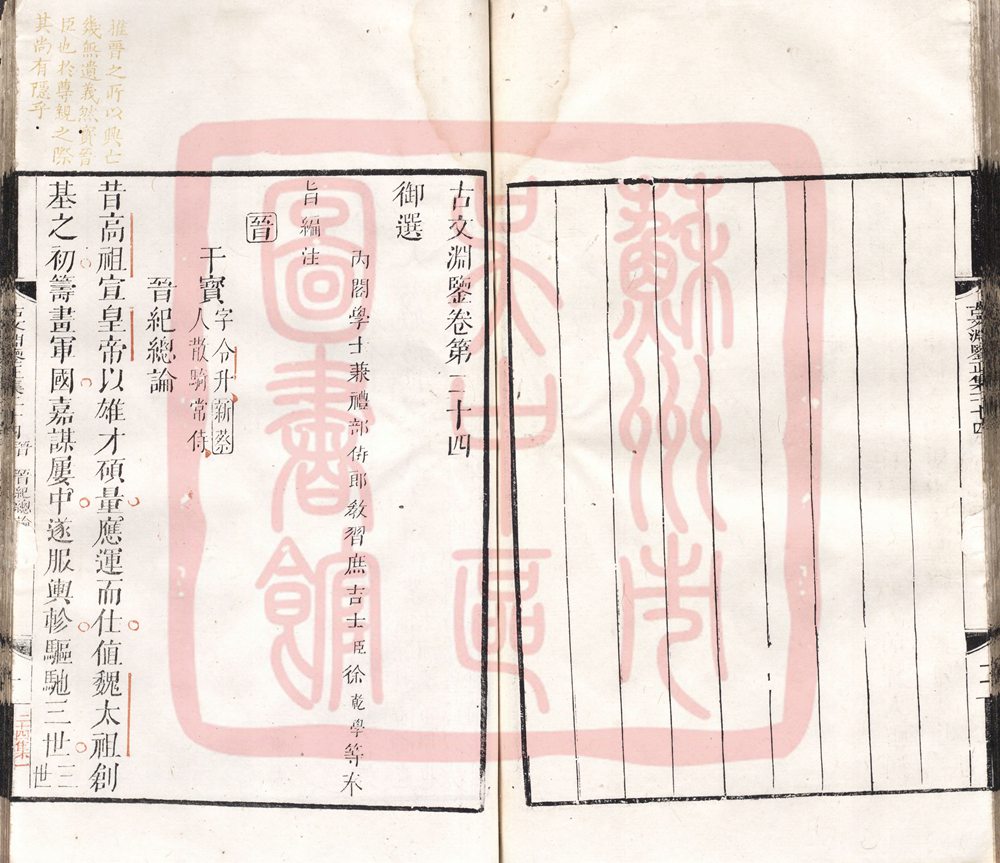 蘇州市
吳中區
圖書館
古文淵鑒卷第二十四
御選
内閣學士兼禮部侍郎教習庶吉士臣徐乾學等奉
旨編注
晉
干寶字令升新蔡
人散騎常侍
晉紀總論
推晉之所以興亡
幾無遺義然寶晉
臣也於尊親之際
其尚有隱乎
昔高祖宣皇帝以雄才碩量應運而仕值魏太祖創
基之初籌畫軍國嘉謀屢中遂服輿軫驅馳三世三
世
晉紀總論